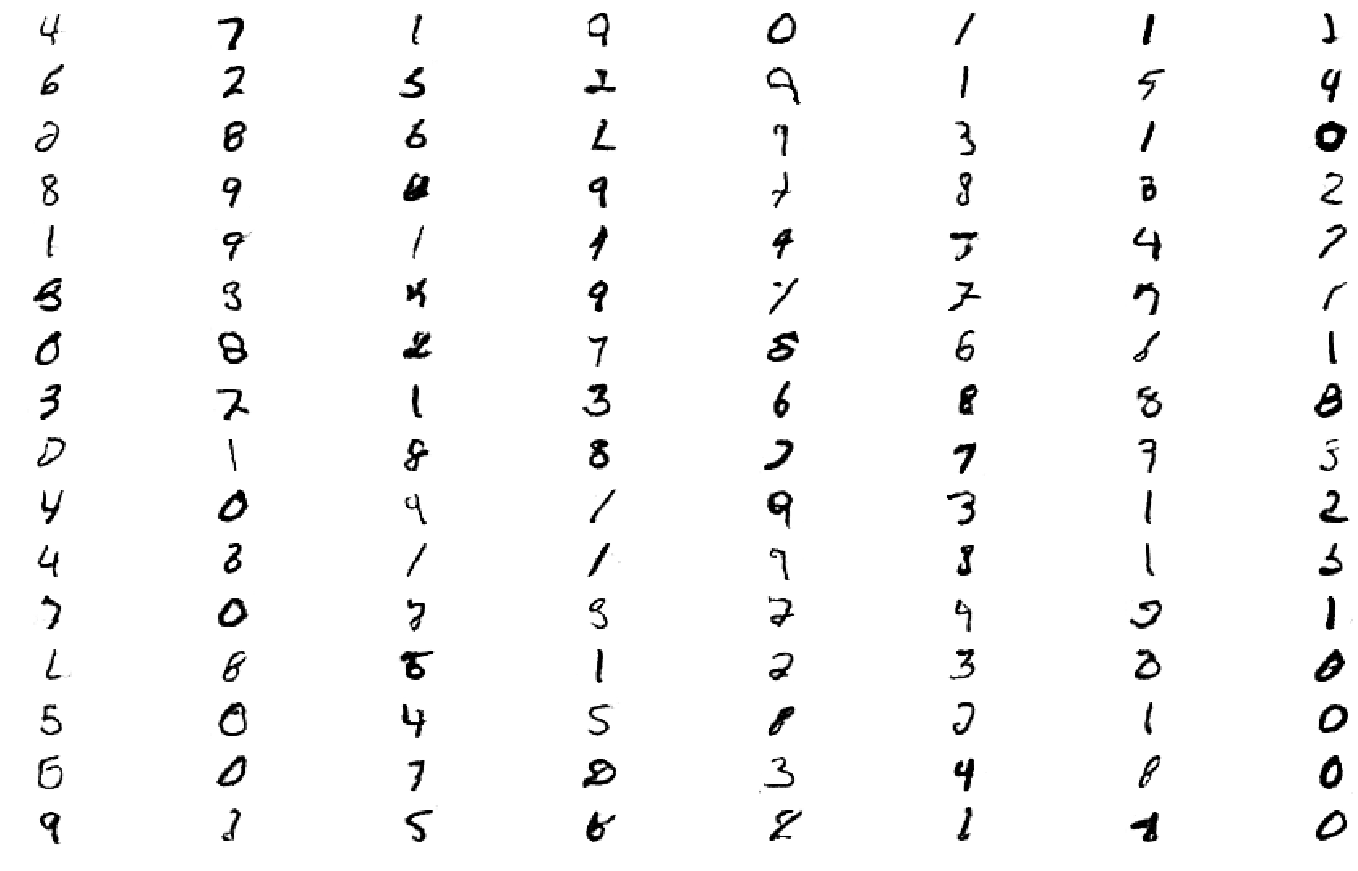 4 7 1 9 0 1 1 1
6 2 3 2 9 1 5 4
2 8 6 2 9 3 1 0
8 9 9 7 8 3 2
1 9 1 1 9 5 4 7
3 3 4 9 7 7
0 8 2 7 5 6 8 1
3 7 1 3 6 8 8 8
0 1 8 8 7 7 7 5
4 0 9 1 9 3 1 2
4 3 1 1 9 8 1 5
7 0 7 9 2 9 1
2 8 5 1 2 3 3 0
5 0 4 5 8 2 1 0
5 0 7 8 3 4 8 0
9 3 5 6 8 1 8 0